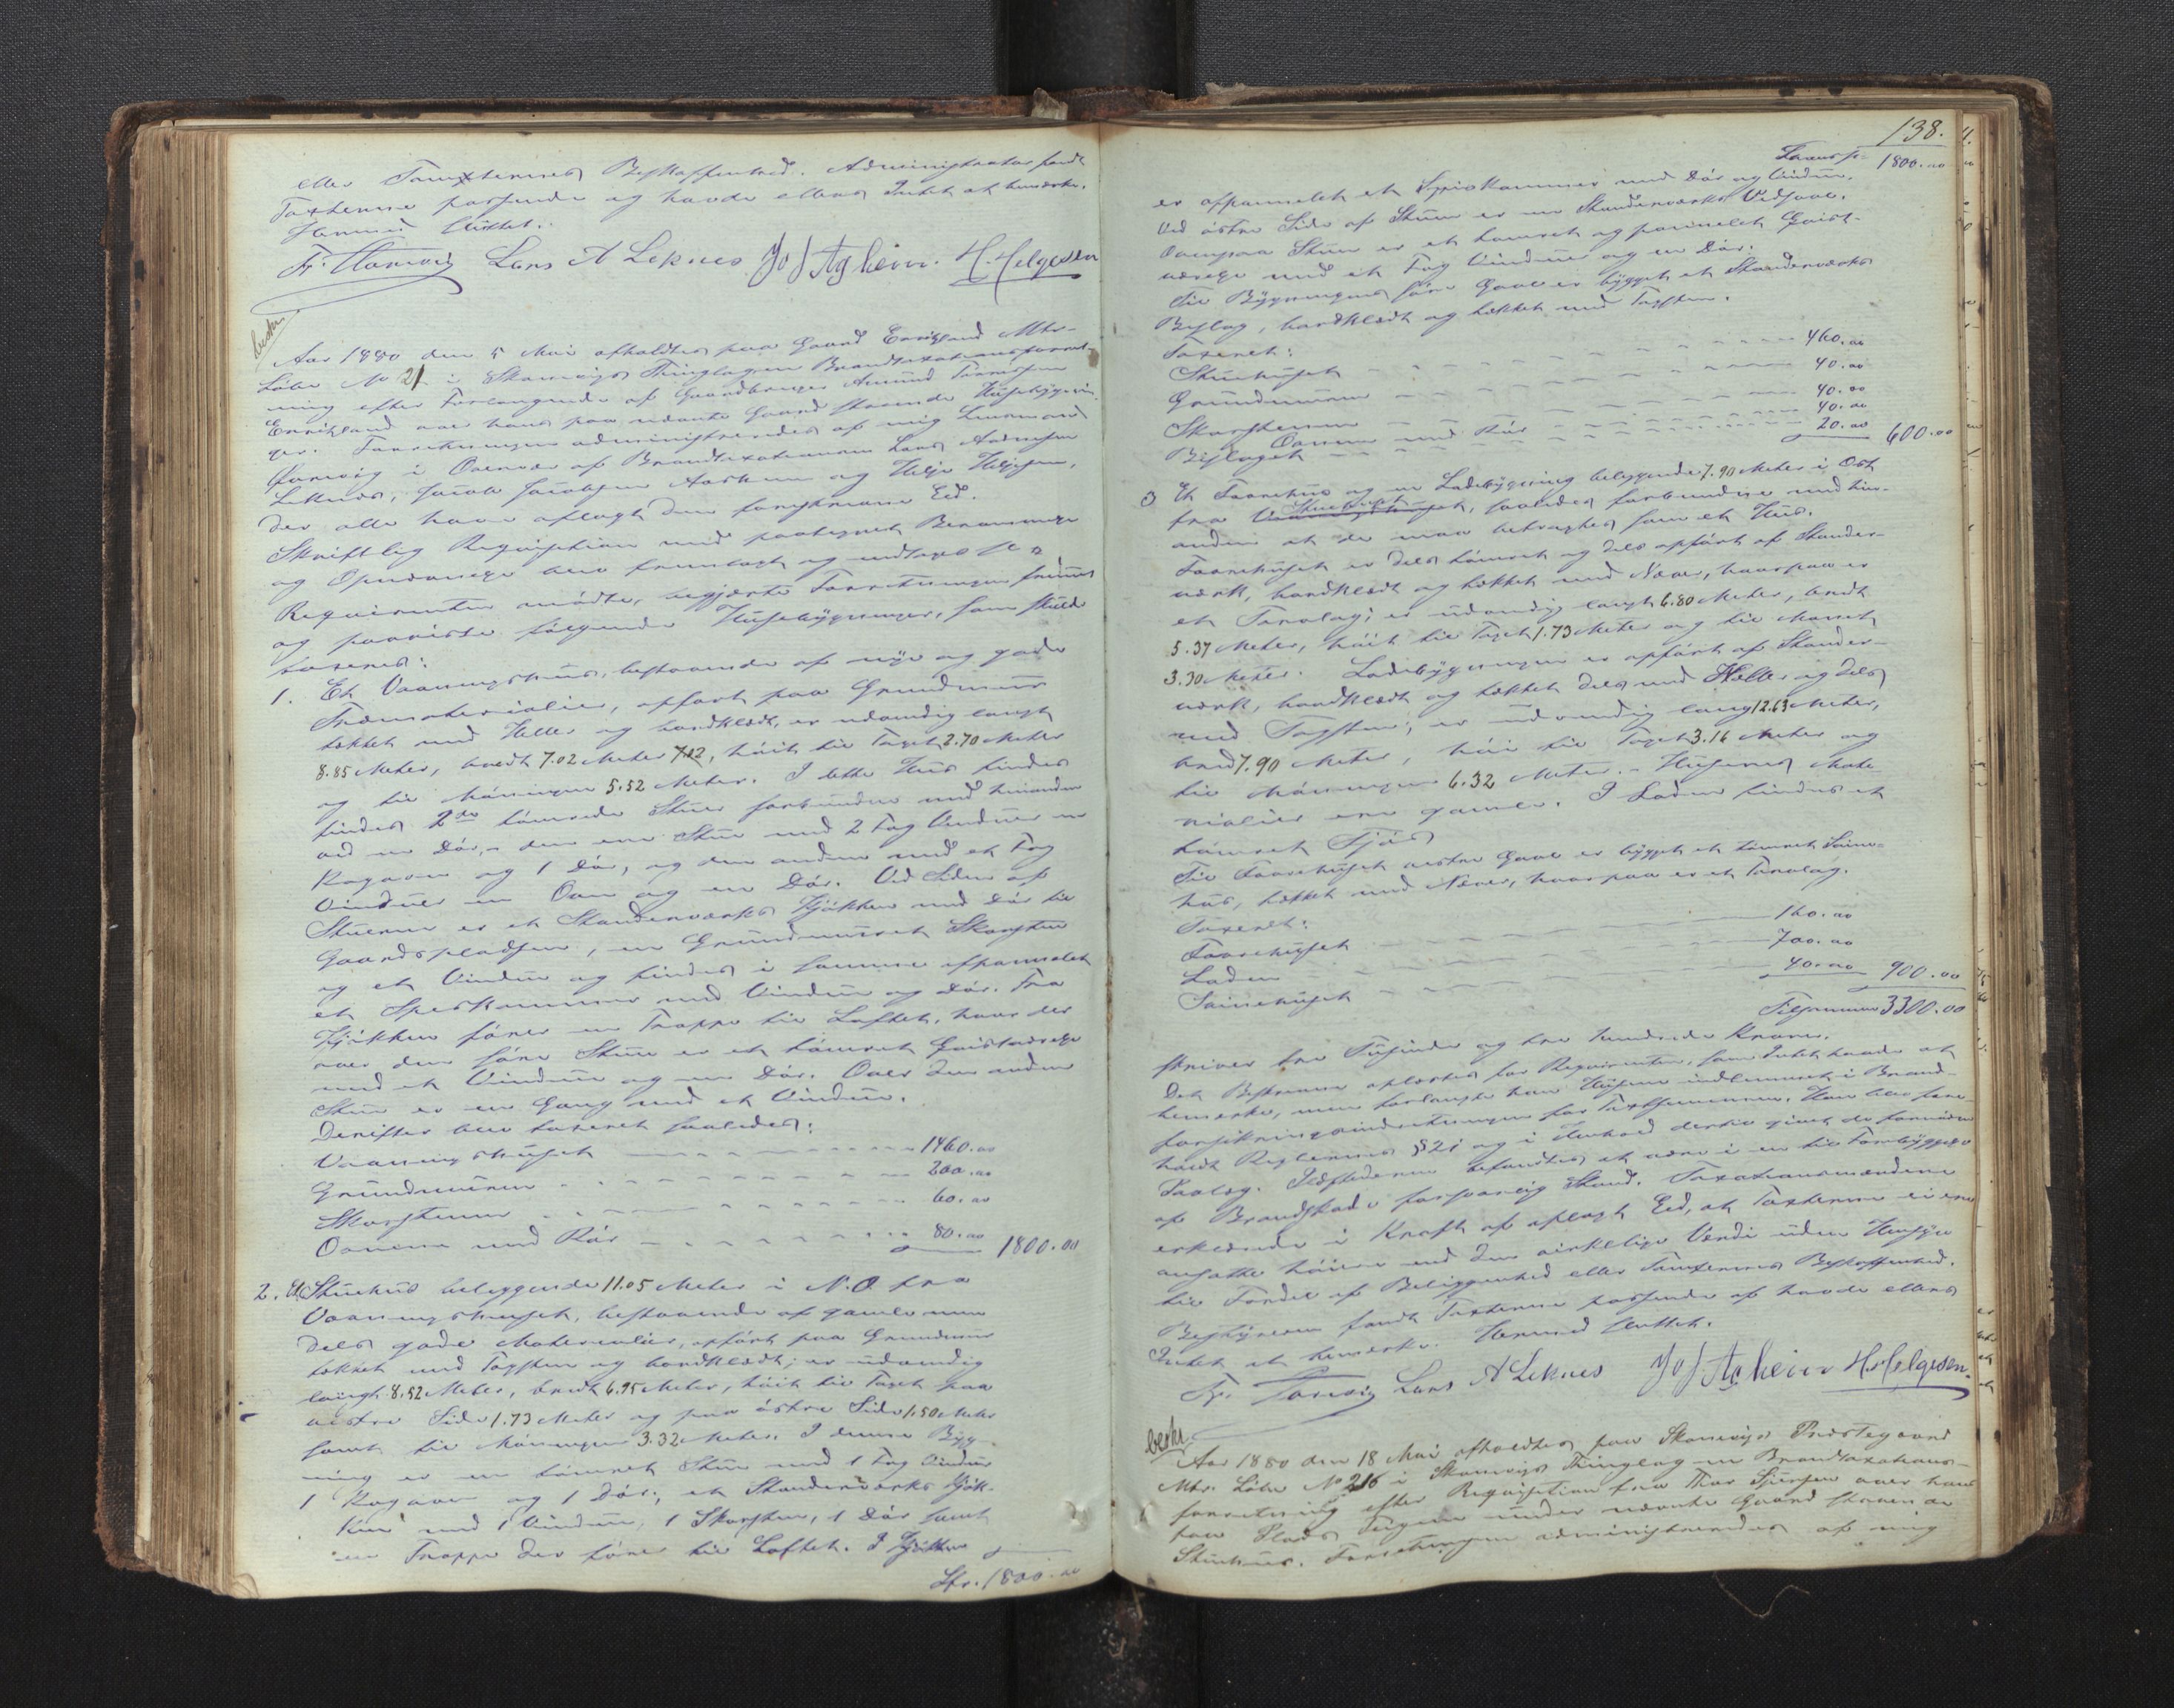 eller Tomternes Beskaffenhed. Administrator fandt
Taxterne passende og havde ellers Intet at bemærke.
Hermed sluttet.
Fr. Hamvig Lars A Leknes J o J Agheim. H. Helgesen
beskr.
Aar 1880 den 5 Mai afholdtes paa Gaard Ersigland Mtr-
Løbe No 21 i Skonevigs Thinglag en Brandtaxationsforret-
ning efter Forlangende af Gaardbruger Amund
over hans paa nævnte Gaard staaende Husebygnin-
ger. Forretningen administreredes af mig Lensmand
i Overvær af Brandtaxationsmænd Lars Andersen
Leknes, Jacob Jacobsen og Helge Helgesen,
der alle have aflagt den foreskrevne Eed.
Skriftlig Reqvisition med paategnet Berammelse
og Opnævnelse blev fremlagt og indtages
Reqvirenten mødte, begjærte Forretningen fremmet
og paaviste følgende Husebygninger, som skulde
taxeres:
1. Et Vaaningshus, bestaaende af nye og gode
Træmaterialier, opført paa Grundmuur
tækket med Heller og bordklædt, er udvendig langt
8.85 Meter, bredt 7.02 Meter 7.02, høit til Taget 2.70 Meter
og til Møningen 5.52 Meter. I dette Hus findes
findes 2de tømrede Stuer forbundne med hinanden
ved en Dør, - den ene Stue med 2 Fag Vinduer en
Kogeovn og 1 Dør, og den anden med et Fag
Vinduer en Ovn og en Dør. Ved Siden af
Stuerne er et Standerværks Kjøkken med Dør til
Gaardspladsen, en Grundmuret Skorsten
og et Vindue og findes i samme afpannelet
et Speskammer med Vindue og Dør. Fra
Kjøkken fører en Trappe til Loftet, hvor der
over den søre Stue er et tømret Gaistværelse
med et Vindue og en Dør. Over den anden
Stue er en Gang med et Vindue.
Derefter blev taxeret saaledes:
Vaaningshuset 1460.00
Grundmuren 200.00
Skorstenen 60.00
Ovnene med Rør 80.00 1800.00
2. Et Stuehus beliggende 11.05 Meter i N.O fra
Vaaningshuset, bestaaende af gamle men
dels gode Materialier, opført paa Grundmur
tækket med Tagsten og bordklædt; er udvendig
langt 8.52 Meter, bredt 6.95 Meter, høit til Taget paa
vestre Side 1.73 Meter og paa østre Side 1.50 Meter
samt til Møningen 3.32 Meter. I denne Byg-
ning er en tømret Stue med 1 Fag Vindue
1 Kogeovn og 1 Dør; et Standerværks Kjøk-
ken med 1 Vindue, 1 Skorsten, 1 Dør samt
en Trappe der fører til Loftet. I Kjøkken
Lfr. 1800.00
138.
Transp. 1800.00
er afpannelet et Spiskammer med Dør og Vindue.
Ved østre Side af Stuen er en Standerværks Vedskaal.
Ovenpaa Stuen er et tømret og pannelet Gaist-
værelse med et Fag Vinduer og en Dør.
Til Bygningens søre Gavl er bygget et Standerværks
Bislag, bordklædt og tækket med Tagsten.
Taxeret:
Stuehuset 460.00
Grundmuren 40.00
Skorstenen 40.00
Ovnen med Rør 40.00
Bislaget 20.00 600.00
3 Et Faarehus og en Ladebygning beliggende 7.90 Meter i Ost
fra Stuehuset, saaledes forbundne med hin-
anden at de maa betragtes som et Hus.
Faarehuset er dels tømret og dels opført af Stander-
værk, bordklædt og tækket med Næver, hvorpaa er
et Torvlag; er udvendig langt 6.80 Meter, bredt
5.37 Meter, høit til Taget 1.73 Meter og til Mønet
3.30 Meter. Ladebygningen er opført af Stander-
værk, bordklædt og tækket dels med Heller og dels
med Tagsten; er udvendig lang 12.63 Meter,
bred 7.90 Meter, høi til Taget 3.16 Meter og
til Møningen 6.32 Meter. - Husenes Mate-
rialier ere gamle. I Laden findes et
tømret Fjøs
Til Faarehusets vestre Gavl er bygget et tømret Svine-
hus, tækket med Næver, hvorpaa er et Torvlag.
Taxeret:
Faarehuset 160.00
Laden 700.00
Svinehuset 40.00 900.00
Tilsammen 3300.00
skriver tre Tusinde og tre hundrede Kroner.
Det Bestemte oplæstes for Reqvirenten, som Intet havde at
bemærke, men forlangte han Husene indlemmet i Brand-
forsikringsindretningen for Taxtsummen. Han blev fore-
holdt Reglernes §21 og i Henhold dertil givet de fornødne
Paalæg. Ildstederne befandtes at være i en til Forebyggelse
af Brandskade forsvarlig Stand. Taxationsmændene
erklærede i Kraft af aflagt Eed, at Taxterne ei ere
ansatte høiere end den virkelige Værdi uden Hensyn
til Fordel af Beliggenhed eller Tomternes Beskaffenhed.
Bestyreren fandt Taxterne passende og havde ellers
Intet at bemærke. Hermed sluttet.
Fr. Lars A Leknes J o J Agheim H. Helgesen.
beskr.
Aar 1880 den 18 Mai afholdtes paa Skonevigs Præstegaard
Mtr. Løbe No 216 i Skonevigs Thinglag en Brandtaxations-
forretning efter Reqvisition fra Thor Sjursen over hans
paa Plads under nævnte Gaard staaende
Stuehus. Forretningen administreredes af mig